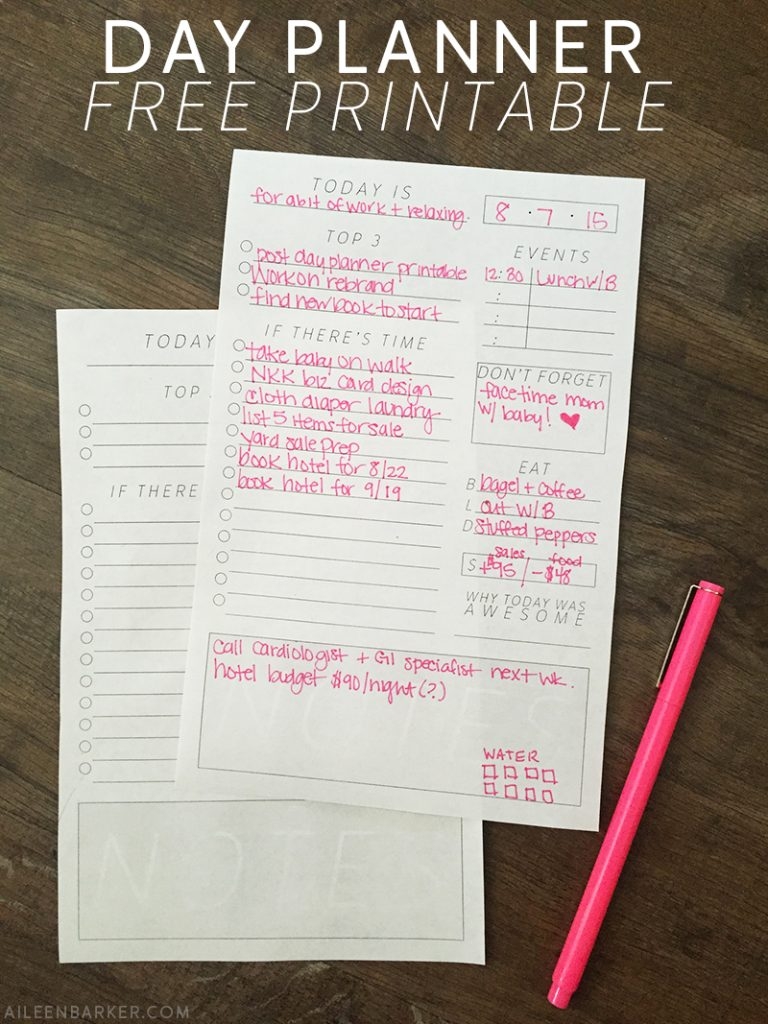 DAY PLANNER
FREE PRINTABLE
TODAY IS
for a bit of work + relaxing.
8 · 7 · 15
TOP 3
post day planner printable
Work on rebrand
find new book to start
EVENTS
12:30 Lunch w/B
:
:
:
IF THERE'S TIME
take baby on walk
NKK biz card design
cloth diaper laundry
list 5 items for sale
yard sale prep
book hotel for 8/22
book hotel for 9/19
DON'T FORGET
facetime mom
w/ baby! ♥
EAT
B bagel + coffee
L out w/B
D stuffed peppers
sales food
$ +$95 / -$48
WHY TODAY WAS
AWESOME
call cardiologist + GI specialist next wk.
hotel budget $90/night (?)
NOTES
WATER
TODAY
TOP
IF THERE
NOTE
AILEENBARKER.COM